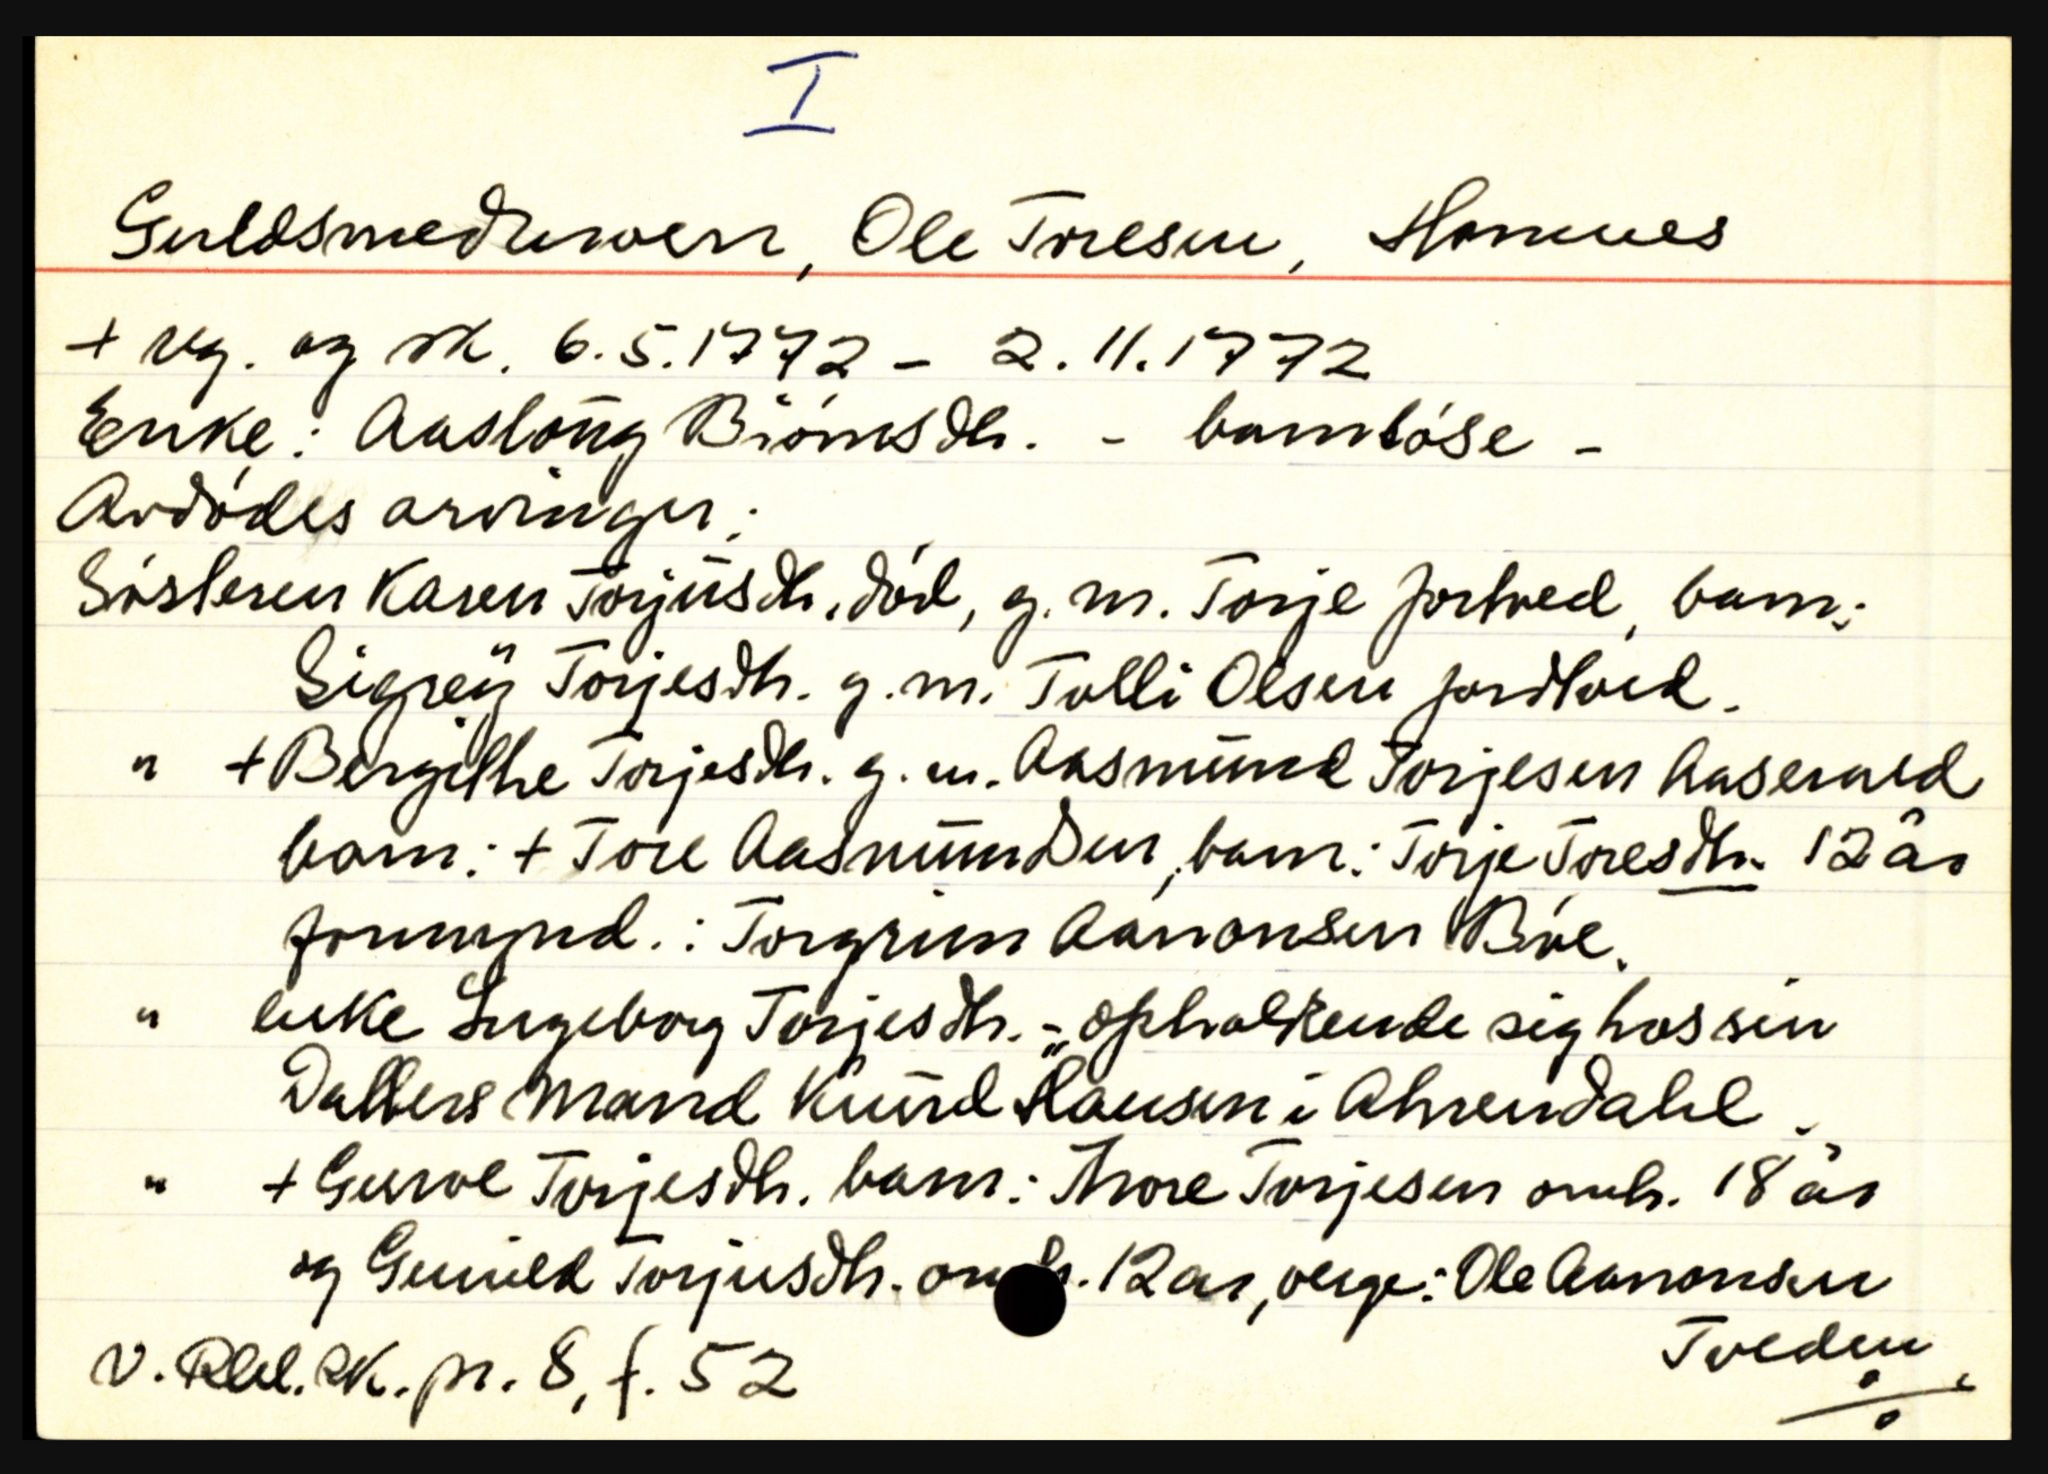 I
Guldsmedunoen, Ole Toresen, Homnes
+ rg. og sk. 6.5.1772 - 2.11.1772
Enke: Aaslöug Biörnsdtr. - barnlöse -
Avdödes arvinger:
Sösteren Karen Torjüsdtr. död, g.m. Torje Jortved, barn:
Sigreÿ Torjesdtr. g.m. Tolli Olsen Jordtved.
" + Bergithe Torjesdtr. g.m. Aasmünd Torjesen Aaserued
barn: + Tore Aasmündsen, barn: Torje Toresdtr. 12 år
formynd.: Torgrim Aanonsen Böe.
" enke Ingeborg Torjesdtr. - "opholdende sig hos sin
Datters Mand Knüd Hansen i Ahrendahl.
" + Gurroe Torjesdtr. barn: Thore Torjesen omh. 18 år
og Gunild Torjusdtr. omh. 12 år, verge: Ole Aanonsen
Tveden
v. Rbl. sk. pr. 8, f. 52